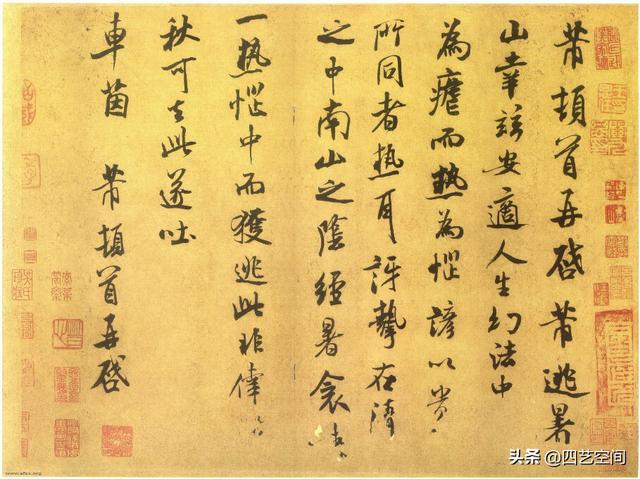 芾頓首再啓芾逃暑
山幸兹安適人生幻法中
為瘧而熱為惱諺以貴
所同者熱耳訝摯在清
之中南山之陰經暑衾
一熱惱中而獲逃此非倖
秋可去此遂吐
車茵 芾頓首再啓
头条 @四艺空间